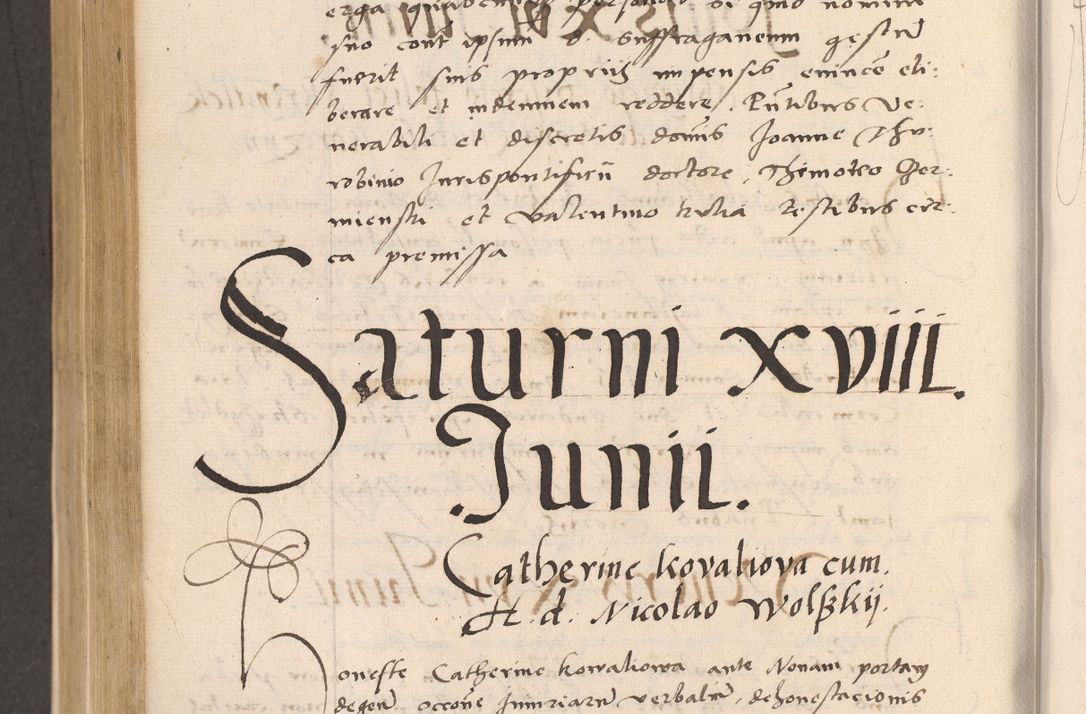 erga quascunque personas
suo cont ipsum d. Suffraganeum gestum
fuerit suis propriis impensis evincere eli:
berare et indemnem reddere. Puntibus Ve:
nerabili et discretis domis Joanne Thu:
robinio Jurispontificii doctore, Thimoteo
mienski et Valentino testibus cir:
ca premissa
Saturni xviii.
.Junii.
Catherine kovaliova cum.
H. d. Nicolao Wolßkij.
Honeste Catherine kowaliowa ante Novam portam
degen̄ occone Iniuriarum verbalium, dehonestacionis